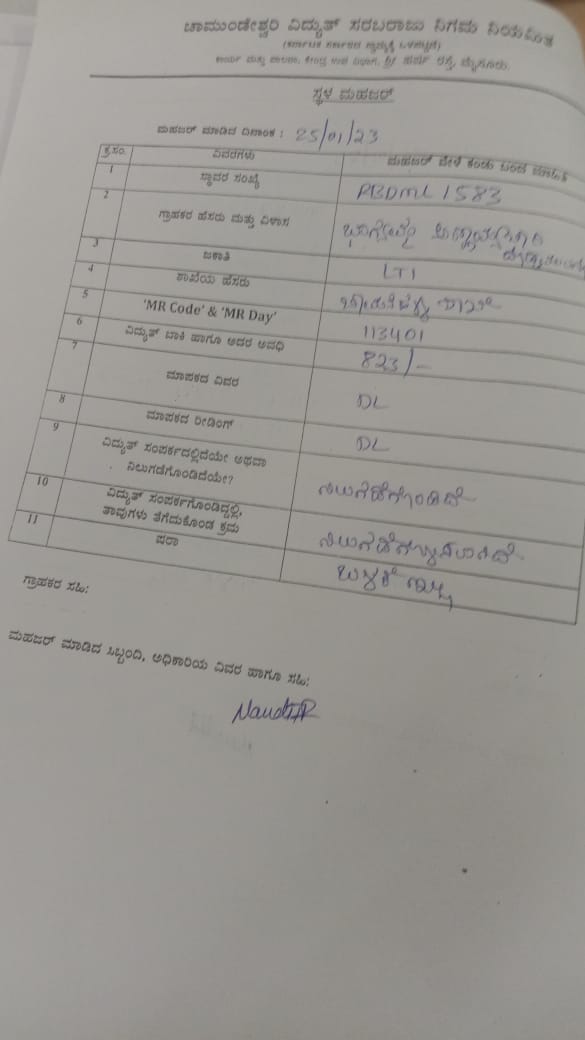 ಚಾಮುಂಡೇಶ್ವರಿ ವಿದ್ಯುತ್ ಸರಬರಾಜು ನಿಗಮ ನಿಯಮಿತ
(ಕರ್ನಾಟಕ ಸರ್ಕಾರದ ಸ್ವಾಮ್ಯಕ್ಕೆ ಒಳಪಟ್ಟಿದೆ)
ಕಾರ್ಯ ಮತ್ತು ಪಾಲನಾ, ಕೇಂದ್ರ ಉಪ ವಿಭಾಗ, ಶ್ರೀ ಹರ್ಷ ರಸ್ತೆ, ಮೈಸೂರು.
ಸ್ಥಳ ಮಹಜರ್
ಮಹಜರ್ ಮಾಡಿದ ದಿನಾಂಕ : 25/01/23
ಕ್ರ.ಸಂ. ವಿವರಗಳು ಮಹಜರ್ ವೇಳೆ ಕಂಡು ಬಂದ ಮಾಹಿತಿ
1 ಸ್ಥಾವರ ಸಂಖ್ಯೆ PBDML1583
2 ಗ್ರಾಹಕರ ಹೆಸರು ಮತ್ತು ವಿಳಾಸ
3 ಜಕಾತಿ LT1
4 ಶಾಖೆಯ ಹೆಸರು
5 'MR Code' & 'MR Day' 113401
6 ವಿದ್ಯುತ್ ಬಾಕಿ ಹಾಗೂ ಅದರ ಅವಧಿ 823/-
7 ಮಾಪಕದ ವಿವರ DL
8 ಮಾಪಕದ ರೀಡಿಂಗ್ DL
9 ವಿದ್ಯುತ್ ಸಂಪರ್ಕದಲ್ಲಿದೆಯೇ ಅಥವಾ
ನಿಲುಗಡೆಗೊಂಡಿದೆಯೇ? ನಿಲುಗಡೆಗೊಂಡಿದೆ
10 ವಿದ್ಯುತ್ ಸಂಪರ್ಕಗೊಂಡಿದ್ದಲ್ಲಿ,
ತಾವುಗಳು ತೆಗೆದುಕೊಂಡ ಕ್ರಮ
11 ಷರಾ ಬಳಕೆ ಇಲ್ಲ
ಗ್ರಾಹಕರ ಸಹಿ:
ಮಹಜರ್ ಮಾಡಿದ ಸಿಬ್ಬಂದಿ, ಅಧಿಕಾರಿಯ ವಿವರ ಹಾಗೂ ಸಹಿ: